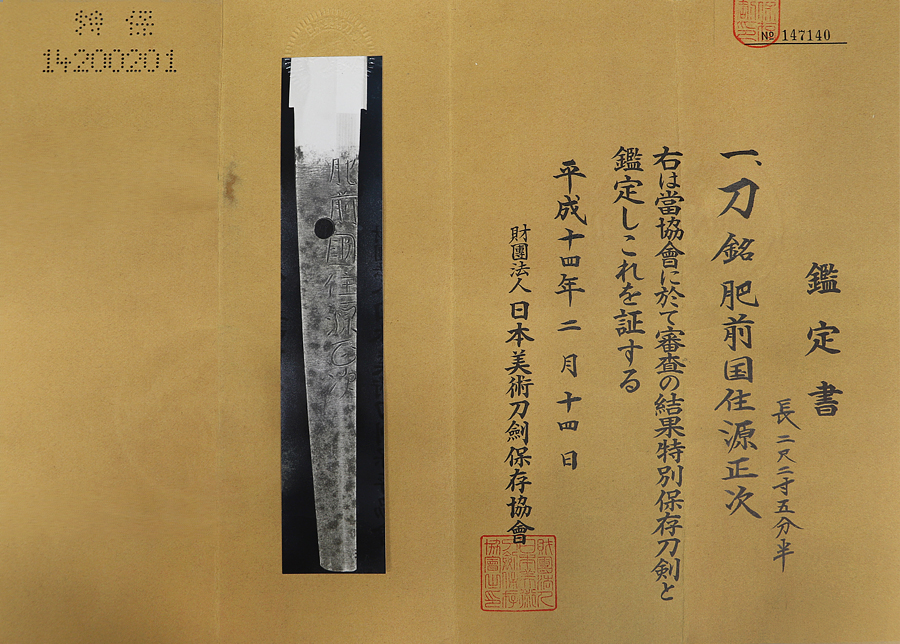 鑑定書
長二尺二寸五分半
一、刀 銘 肥前国住源正次
右は當協會に於て審査の結果特別保存刀剣と
鑑定しこれを証する
平成十四年二月十四日
財團法人 日本美術刀劍保存協會
№ 147140
特保
14200201
肥前國住源正次